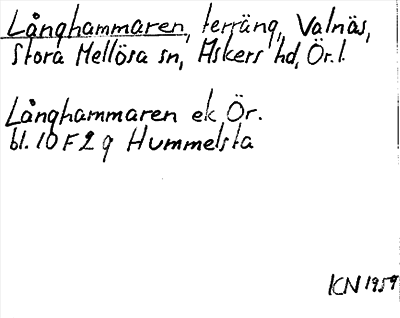 Långhammaren, terräng, Valnäs,
Stora Mellösa sn, Askers hd, Ör. l.
Långhammaren ek Ör.
bl. 10 F 2 g Hummelsta
KN 1959